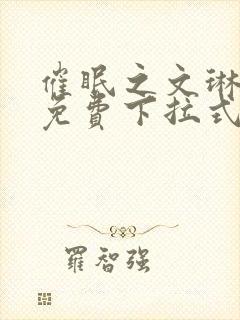 催眠之文琳
免費下拉式
羅智强